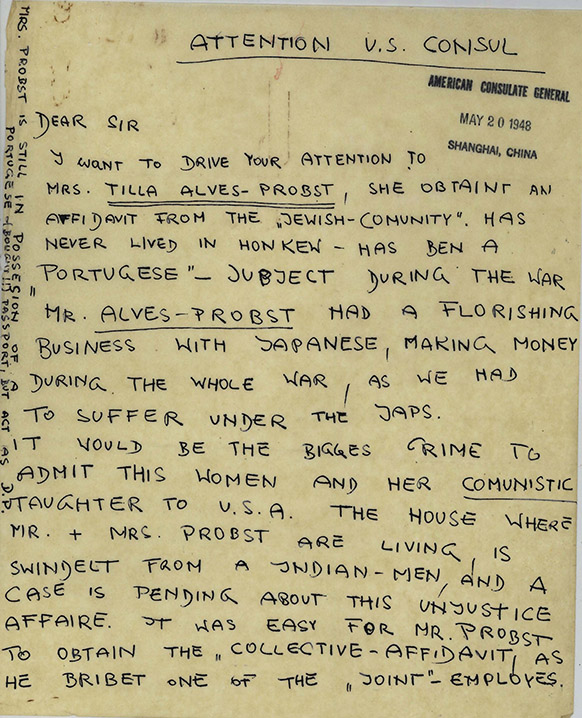 ATTENTION U.S. CONSUL
AMERICAN CONSULATE GENERAL
MAY 20 1948
SHANGHAI, CHINA
DEAR SIR
I WANT TO DRIVE YOUR ATTENTION TO
MRS. TILLA ALVES-PROBST, SHE OBTAINT AN
AFFIDAVIT FROM THE „JEWISH-COMUNITY". HAS
NEVER LIVED IN HONKEW – HAS BEN A
„PORTUGESE"– SUBJECT DURING THE WAR
MR. ALVES-PROBST HAD A FLORISHING
BUSINESS WITH JAPANESE, MAKING MONEY
DURING THE WHOLE WAR, AS WE HAD
TO SUFFER UNDER THE JAPS.
IT WOULD BE THE BIGGES CRIME TO
ADMIT THIS WOMEN AND HER COMUNISTIC
TAUGHTER TO U.S.A. THE HOUSE WHERE
MR. + MRS. PROBST ARE LIVING, IS
SWINDELT FROM A INDIAN-MEN, AND A
CASE IS PENDING ABOUT THIS UNJUSTICE
AFFAIRE. IT WAS EASY FOR MR. PROBST
TO OBTAIN THE „COLLECTIVE-AFFIDAVIT, AS
HE BRIBET ONE OF THE „JOINT"-EMPLOYES.
MRS. PROBST IS STILL IN POSSESION OF A
PORTUGESE (BOUGHT) PASSPORT, BUT ACT AS D.P.